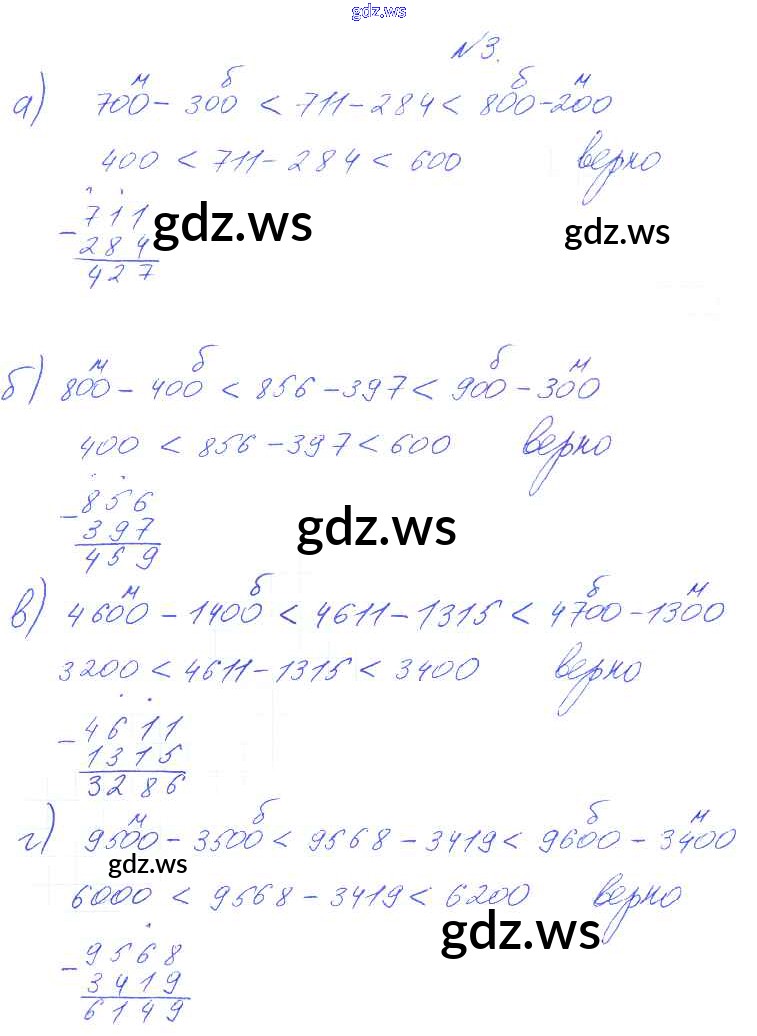 gdz.ws
№3.
а) 700 м - 300 б < 711 - 284 < 800 б - 200 м
400 < 711 - 284 < 600 верно
- 711 gdz.ws gdz.ws
284
427
б) 800 м - 400 б < 856 - 397 < 900 б - 300 м
400 < 856 - 397 < 600 верно
- 856
397 gdz.ws
459
в) 4600 м - 1400 б < 4611 - 1315 < 4700 б - 1300 м
3200 < 4611 - 1315 < 3400 верно
- 4611
1315
3286
г) 9500 м - 3500 б < 9568 - 3419 < 9600 б - 3400 м
gdz.ws
6000 < 9568 - 3419 < 6200 верно
gdz.ws
- 9568
3419
6149